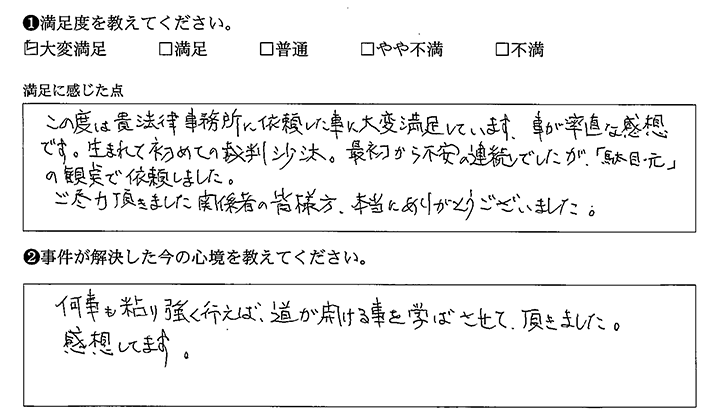 ❶満足度を教えてください。
☑大変満足 □満足 □普通 □やや不満 □不満
満足に感じた点
この度は貴法律事務所に依頼した事に大変満足しています。事が率直な感想
です。生まれて初めての裁判沙汰。最初から不安の連続でしたが、「駄目元」
の観点で依頼しました。
ご尽力頂きました関係者の皆様方、本当にありがとうございました。
❷事件が解決した今の心境を教えてください。
何事も粘り強く行えば、道が開ける事を学ばさせて、頂きました。
感想してます。